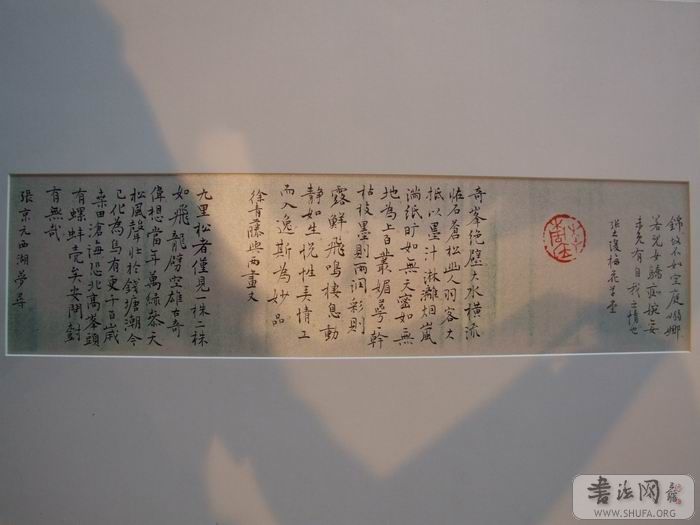 錦城不如空庭嫋娜
若兒女驕癡婉妾
未免有自我之情也
張大復梅花草堂
奇峯絕壁大水橫流
怪石蒼松幽人羽客大
抵以墨汁淋漓烟嵐
滿紙曠如無天密如無
地為上百叢媚萼一幹
枯枝墨則雨潤彩則
露鮮飛鳴棲息動
靜如生悅性弄情工
而入逸斯為妙品
徐青藤與兩畫史
九里松者僅見一株二株
如飛龍劈空雄古奇
偉想當年萬綠參天
松風聲壯於錢塘潮今
已化為烏有更千百歲
桑田滄海恐北高峯頭
有螺蚌壳矣安問樹
有無哉
張京元西湖夢尋
書法网
WWW.SHUFA.ORG